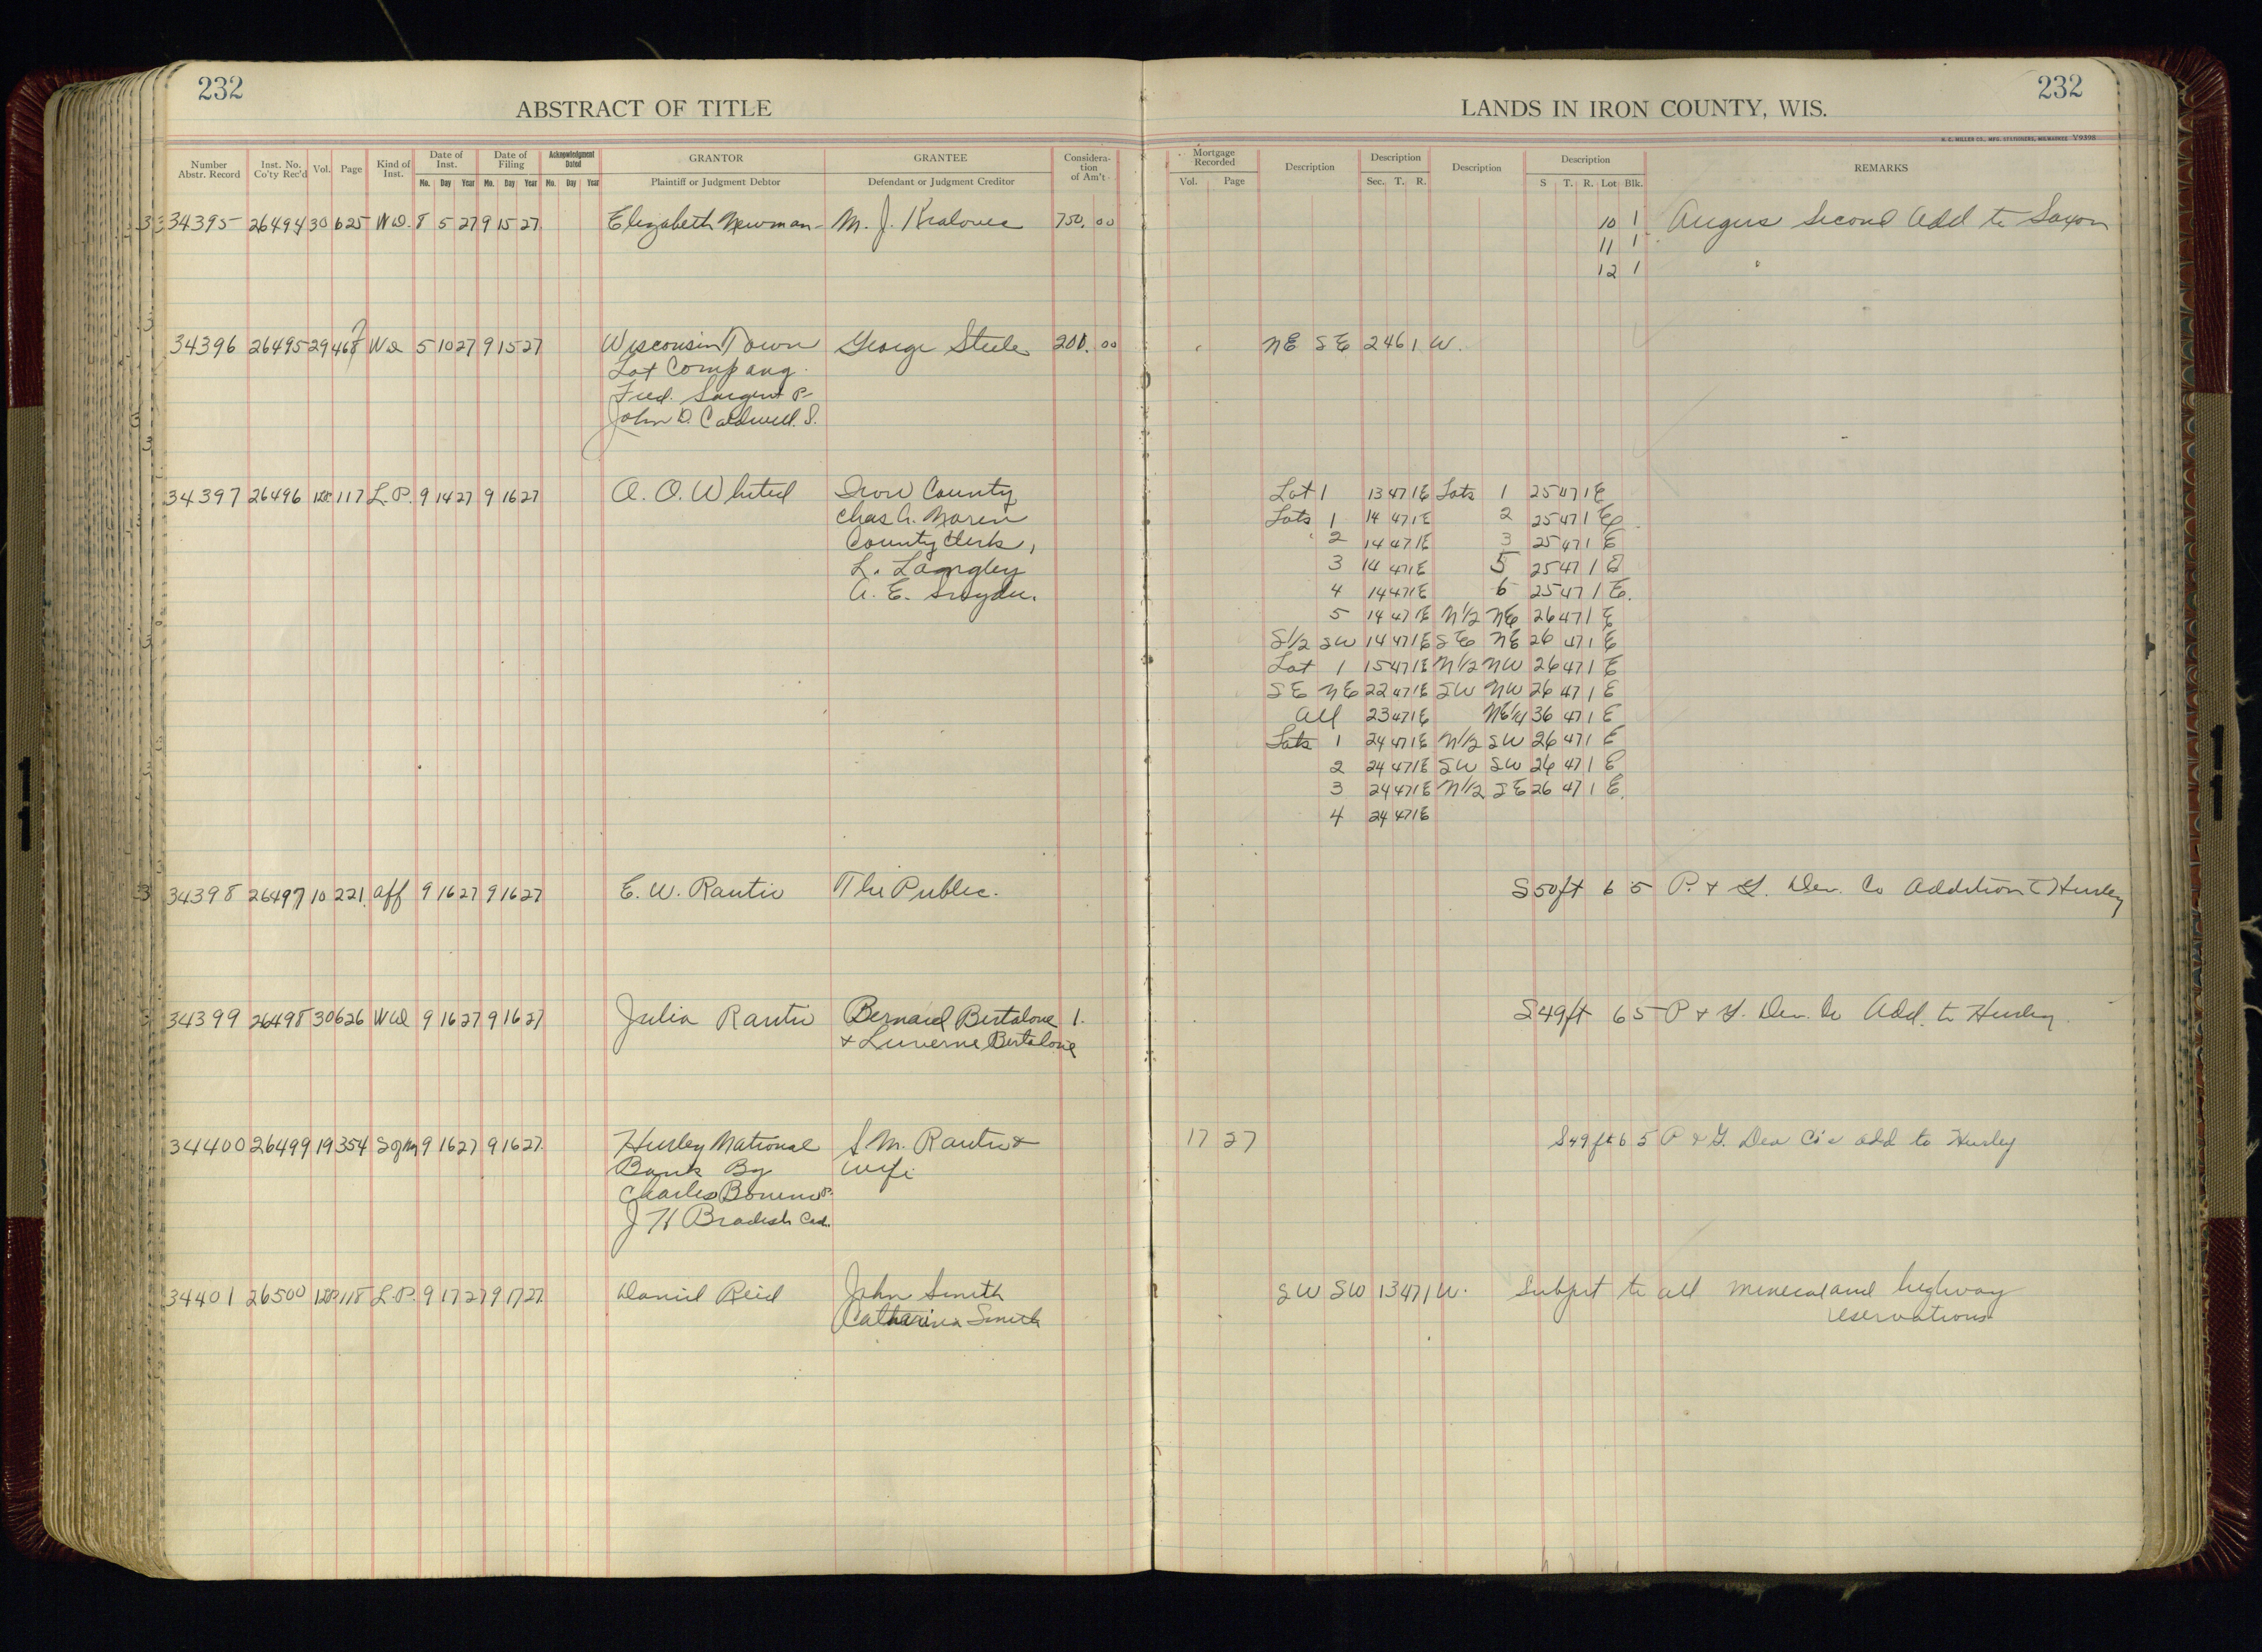 232
ABSTRACT OF TITLE
LANDS IN IRON COUNTY, WIS.
232
H. C. MILLER CO., MFG. STATIONERS, MILWAUKEE V9398
Number Abstr. Record Inst. No. Co'ty Rec'd Vol. Page Kind of Inst. Date of Inst. Mo. Day Year Date of Filing Mo. Day Year Acknowledgment Dated Mo. Day Year GRANTOR Plaintiff or Judgment Debtor GRANTEE Defendant or Judgment Creditor Consideration of Am't
Mortgage Recorded Vol. Page Description Description Sec. T. R. Description Description S T. R. Lot Blk. REMARKS
34395 26494 30 625 WD. 8 5 27 9 15 27 Elizabeth Newman M. J. Kralovec 750.00 10 1 Angus Second Add to Saxon
11 1
12 1
34396 26495 29 468 WD 5 10 27 9 15 27 Wisconsin Town George Steele 201.00 NE SE 24 6 1 W.
Lot Company.
Fred. Sargent P
John D. Caldwell. S.
34397 26496 117 L.P. 9 14 27 9 16 27 A. O. Whited Iron County Lot 1 13 47 1E Lots 1 25 47 1E
Chas A. Noren Lots 1 14 47 1E 2 25 47 1 E
County Clerk, 2 14 47 1E 3 25 47 1 E
L. Langley 3 14 47 1E 5 25 47 1 E
A. E. Snyder. 4 14 47 1E 6 25 47 1 E.
5 14 47 1E N½ NE 26 47 1 E
S½ SW 14 47 1E SE NE 26 47 1 E
Lot 1 15 47 1E N½ NW 26 47 1 E
SE NE 22 47 1E SW NW 26 47 1 E
All 23 47 1E NE¼ 36 47 1 E
Lots 1 24 47 1E N½ SW 26 47 1 E
2 24 47 1E SW SW 26 47 1 E
3 24 47 1E N½ SE 26 47 1 E.
4 24 47 1E
34398 26497 10 221 aff 9 16 27 9 16 27 E. W. Rautio The Public. S50ft 6 5 P. & G. Dev. Co Addition to Hurley
34399 26498 30 626 WD 9 16 27 9 16 27 Julia Rautio Bernard Bertalone 1. S49ft 6 5 P & G. Dev. Co Add. to Hurley
& Luverne Bertalone
34400 26499 19 354 9 16 27 9 16 27 Hurley National S M. Rautio & 17 27 S49ft 6 5 P & G. Dev Co's add to Hurley
Bank By wife
Charles Bonino P.
J H Bradish Cas.
34401 26500 118 L.P. 9 17 27 9 17 27 Daniel Reid John Smith SW SW 13 47 1 W. Subject to all mineral and highway
Catharina Smith reservations